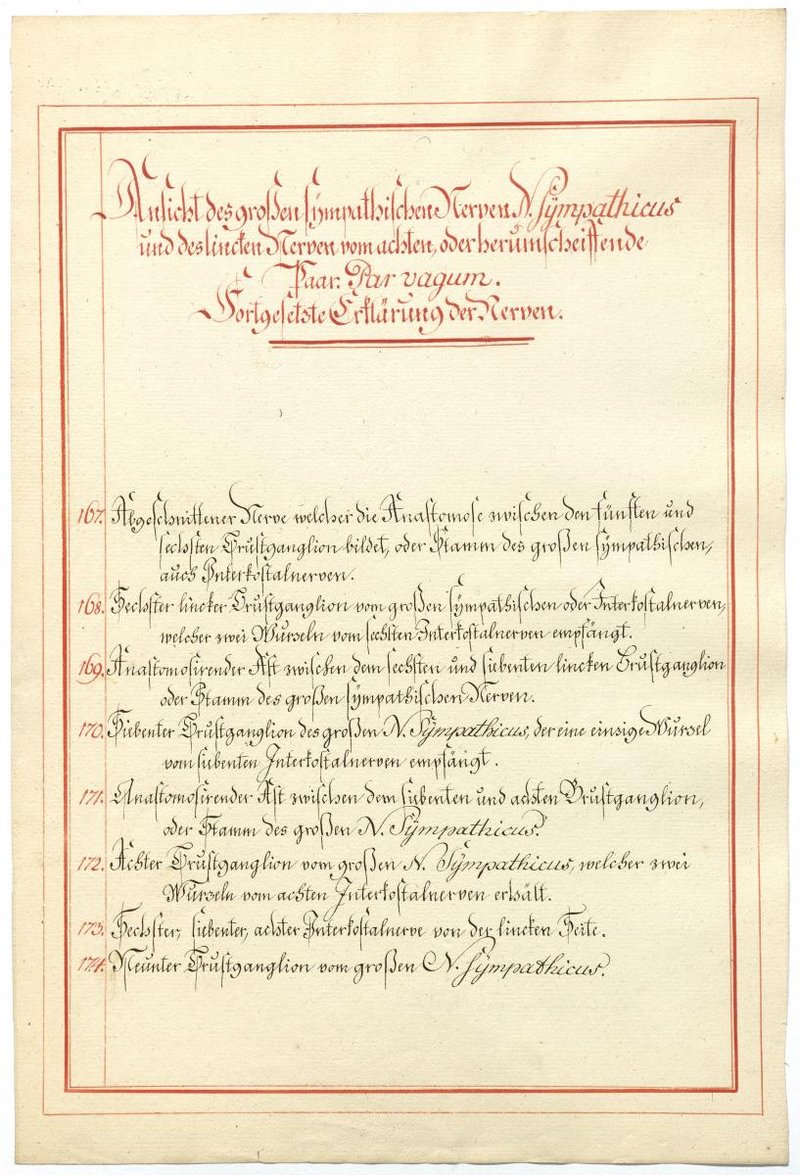 Ansicht des großen sÿmpathischen Nerven N. Sÿmpathicus
und des lincken Nerven vom achten, oder herumscheiffende
Paar. Par vagum.
Fortgesetste Erklärung der Nerven.
167. Abgeschnittener Nerve welcher die Anastomose zwischen den fünften und
sechsten Brustganglion bildet, oder Stamm des großen sÿmpathischen,
auch Interkostalnerven.
168. Sechster lincker Brustganglion vom großen sÿmpathischen oder Interkostalnerven,
welcher zwei Wurzeln vom sechsten Interkostalnerven empfängt.
169. Anastomosirender Ast zwischen dem sechsten und siebenten lincken Brustganglion
oder Stamm des großen sÿmpathischen Nerven.
170. Siebenter Brustganglion des großen N. Sÿmpathicus, der eine einzige Wurzel
vom siebenten Interkostalnerven empfängt.
171. Anastomosirender Ast zwischen dem siebenten und achten Brustganglion,
oder Stamm des großen N. Sÿmpathicus.
172. Achter Brustganglion vom großen N. Sÿmpathicus, welcher zwei
Wurzeln vom achten Interkostalnerven erhält.
173. Sechster, siebenter, achter Interkostalnerve von der lincken Seite.
174. Neunter Brustganglion vom großen N. Sÿmpathicus.